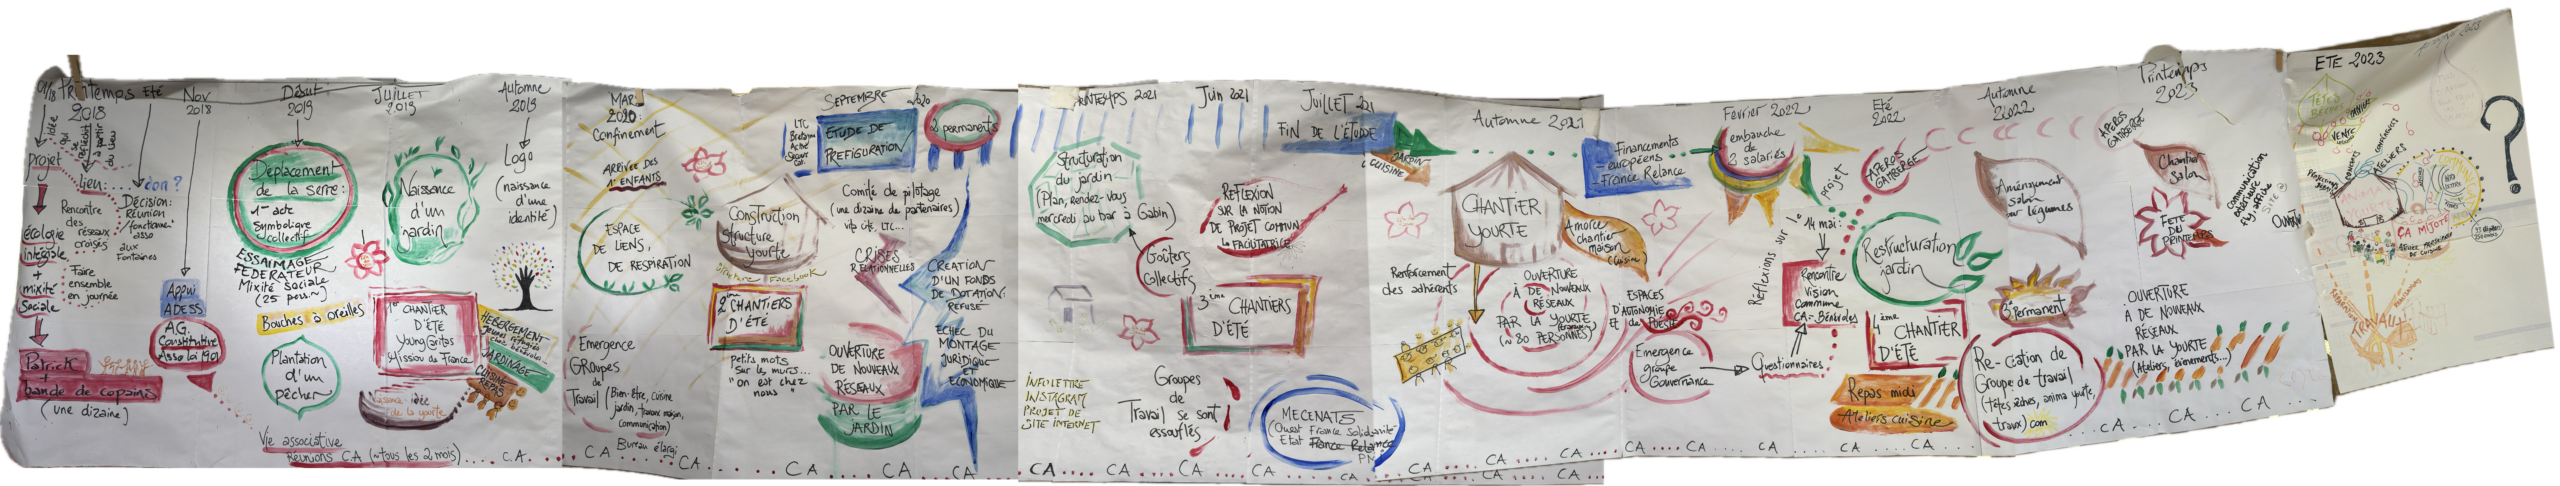 01/18
Printemps
2018
idée
qui
se
réfléchit
à partir
du lieu
projet
écologie
intégrale
+
mixité
Sociale
Patrick
+
bande de copains
(une dizaine)
lieu:
Rencontre
des
réseaux
croisés
Faire
ensemble
en journée
Eté
don ?
Décision:
Réunion
asso
aux
Fontaines
Nov
2018
Appui
ADESS
A.G.
Constitutive
Asso loi 1901
Vie associative
Réunions C.A (~tous les 2 mois)
C.A.
Début
2019
Déplacement
de la serre:
1er acte
Symbolique
collectif
ESSAIMAGE
FEDERATEUR
Mixité Sociale
(25 pers~)
Bouches à oreilles
Plantation
d'un
pêcher
JUILLET
2019
Naissance
d'un
jardin
1er CHANTIER
D'ÉTÉ
Young Caritas
Mission de France
Naissance idée
de la yourte
Automne
2019
Logo
(naissance
d'une
identité)
HEBERGEMENT
JARDINAGE
CUISINE
REPAS
MARS
2020:
Confinement
ARRIVÉE DES
1er ENFANTS
ESPACE
DE LIENS,
DE RESPIRATION
Emergence
GRoupes
de
Travail (Bien-être, cuisine
jardin, travaux maison,
communication)
Bureau élargi
CA
CA
Construction
structure
yourte
Structure Facebook
2ème CHANTIERS
D'ÉTÉ
petits mots
sur les murs...
"on est chez
nous"
SEPTEMBRE 2020
LTC
ETUDE DE
PREFIGURATION
Comité de pilotage
(une dizaine de partenaires)
CRISES
RELATIONNELLES
OUVERTURE
DE NOUVEAUX
RESEAUX
PAR LE
JARDIN
CA
CA
CA
2 permanents
CREATION
D'UN FONDS
DE DOTATION:
REFUSÉ
ECHEC DU
MONTAGE
JURIDIQUE
ET
ECONOMIQUE
PRINTEMPS 2021
Structuration
du jardin
(Plan, Rendez-vous
mercredi au bar à Gabin)
Goûters
Collectifs
INFOLETTRE
INSTAGRAM
PROJET DE
SITE INTERNET
Groupes
de
Travail se sont
essouflés
CA
CA
CA
CA
Juin 2021
REFLEXION
SUR LA NOTION
DE PROJET COMMUN
LA FACILITATRICE
3ème CHANTIERS
D'ÉTÉ
Juillet 2021
FIN DE L'ÉTUDE
JARDIN
CUISINE
MECENATS
(Ouest France Solidarité
Etat France Relance
CA
CA
Automne 2021
CHANTIER
YOURTE
Amorce
chantier
maison
(Cuisine
Renforcement
des adhérents
OUVERTURE
À DE NOUVEAUX
RÉSEAUX
PAR LA YOURTE
(~80 PERSONNES)
CA
CA
CA
CA
Financements
- européens
- France Relance
ESPACES
D'AUTONOMIE
ET de POESIE
Emergence
groupe
Gouvernance
Questionnaires
Février 2022
embauche
de
3 salariés
Réflexions sur le projet
14 mai:
Rencontre
Vision
Commune
CA-Bénévoles
CA
CA
CA
CA
Eté
2022
APEROS
GAMBERGE
Restructuration
jardin
4ème
CHANTIER
D'ÉTÉ
Repas midi
Ateliers cuisine
CA
CA
Automne
2022
Aménagement
salon
bar légumes
3e Permanent
Re-création de
Groupe de travail
(têtes sèches, anima yourte,
travx) com
CA
CA
CA
Printemps
2023
APEROS
GAMBERGE
Chantier
Salon
FETE
DU
PRINTEMPS
Communication
extérieure
fly, affich
SITE
OUVERTURE
À DE NOUVEAUX
RÉSEAUX
PAR LA YOURTE
(Ateliers, évènements...)
ETE 2023
TÊTES
SÈCHES
VENTE
CONSERVES
ATELIERS
ÇA MIJOTE
TRAVAUX
?